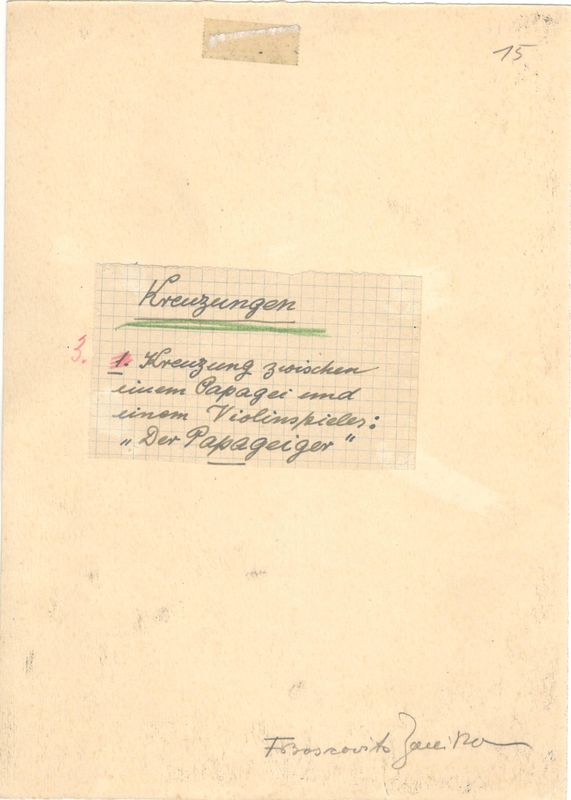 15
Kreuzungen
3.
1. Kreuzung zwischen
einem Papagei und
einem Violinspieler:
„Der Papageiger"
FBoscovits